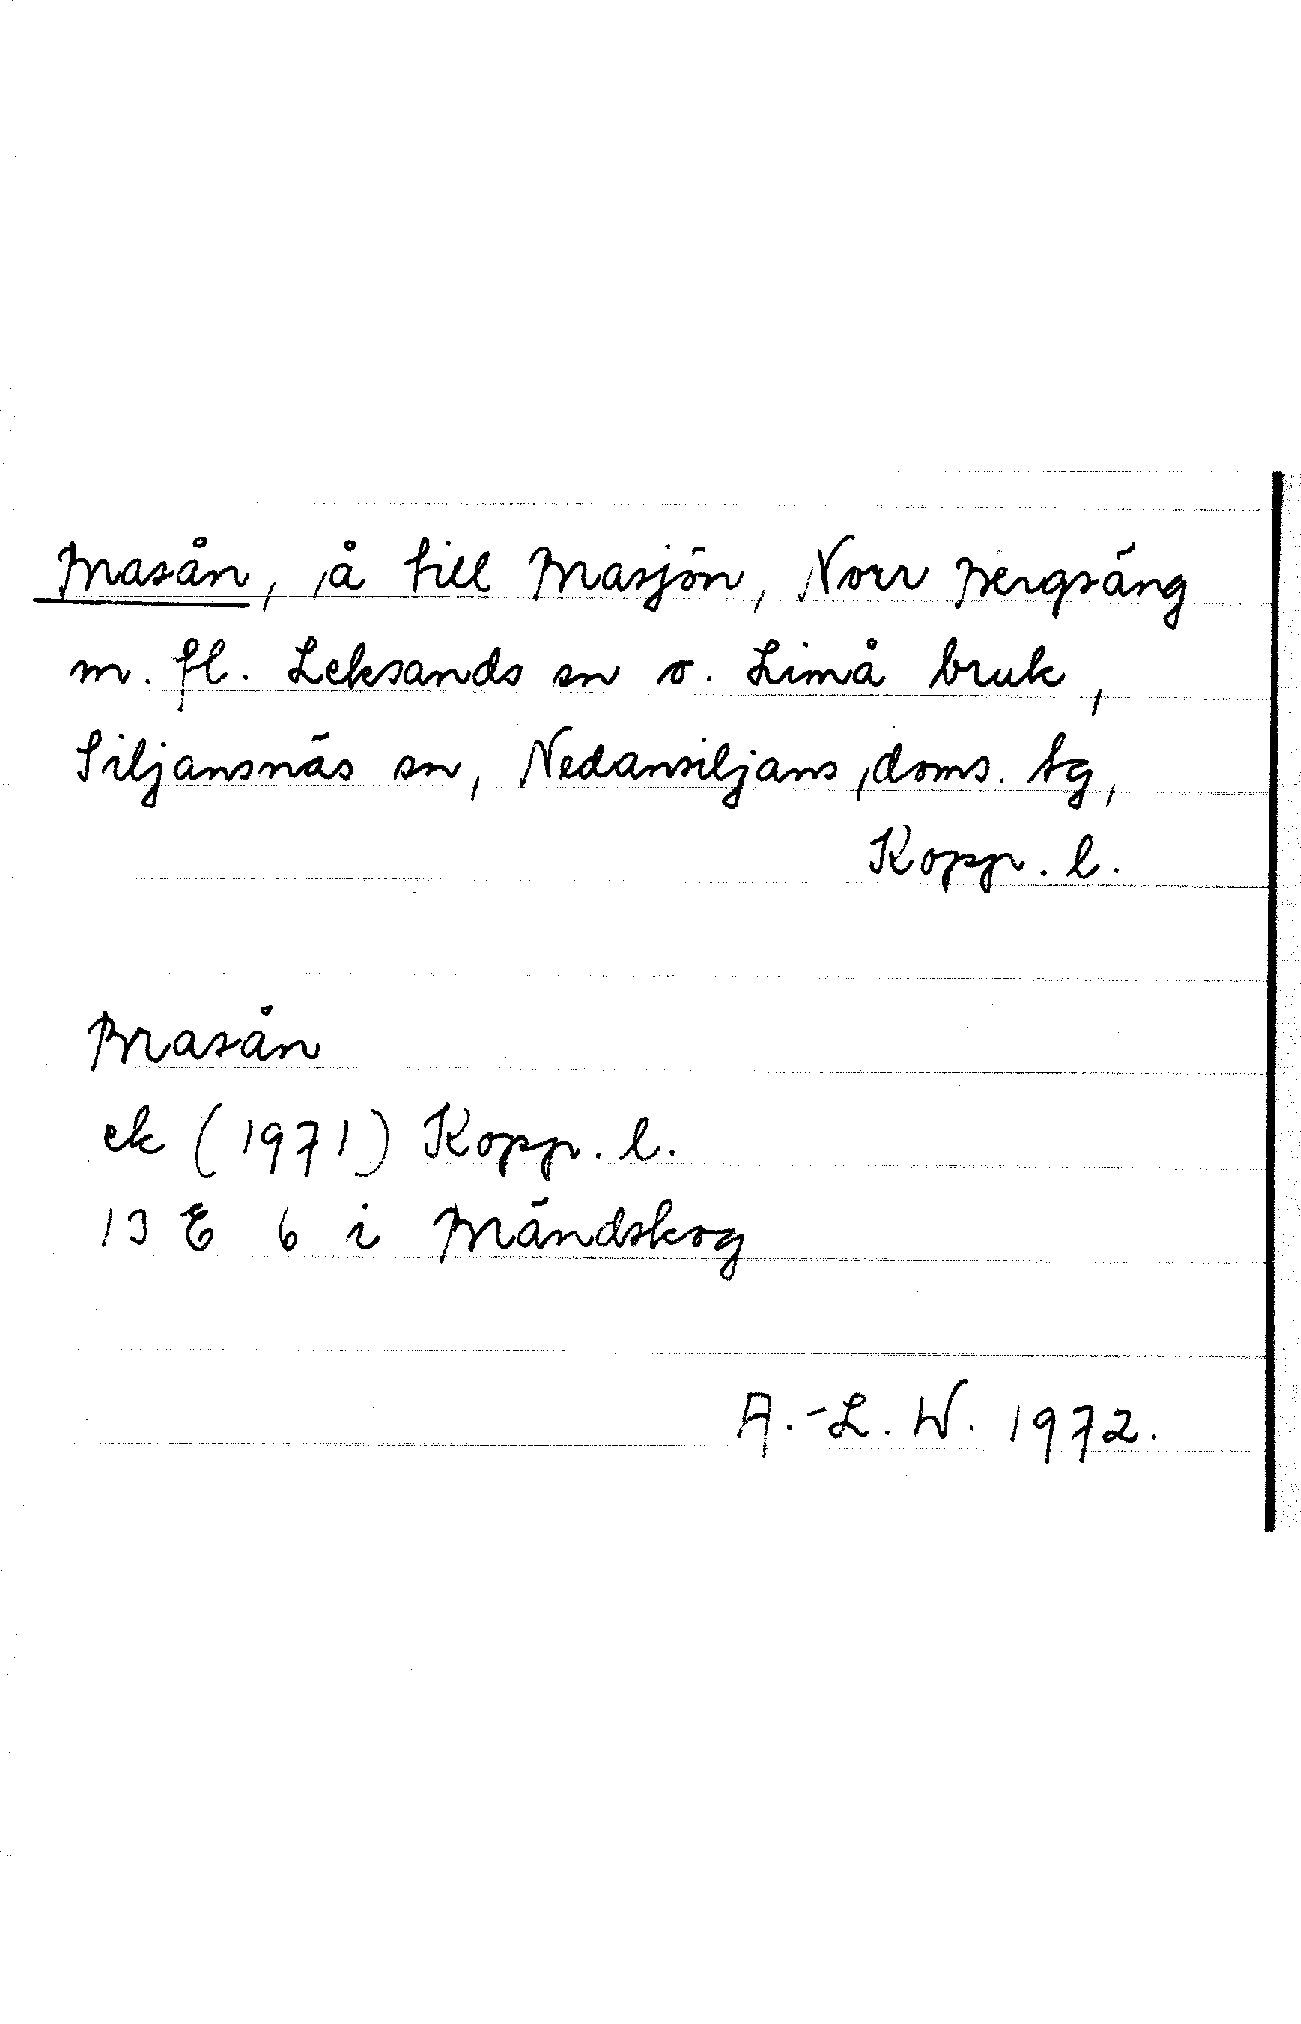 Masån, å till Masjön, Norr Bergsäng
m. fl. Leksands sn o. Limå bruk,
Siljansnäs sn, Nedansiljans doms. tg,
Kopp. l.
Masån
ek (1971) Kopp. l.
13 E 6 i Mändskog
A.-L. W. 1972.